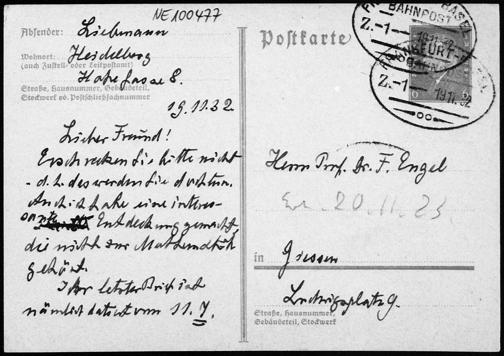 NE100477
Absender: Liebmann
Wohnort: Heidelberg
(auch Zustell- oder Leitpostamt)
Hake gasse 8.
Straße, Hausnummer, Gebäudeteil,
Stockwerk od. Postschließfachnummer
19.11.32
Lieber Freund!
Erschrecken Sie bitte nicht
- d.h. das werden Sie doch tun.
Auch ich habe eine interes-
sante Entdeckung gemacht,
die nicht zur Mathematik
gehört.
Ihr letzter Brief ist
nämlich datiert vom 11.7.
Postkarte
BASEL
BAHNPOST
Z.-1
19.11.32
FRANKFURT
Z.-1
19.11.32
Herrn Prof. Dr. F. Engel
20.11.
in Giessen
Ludwigsplatz 9.
Straße, Hausnummer,
Gebäudeteil, Stockwerk